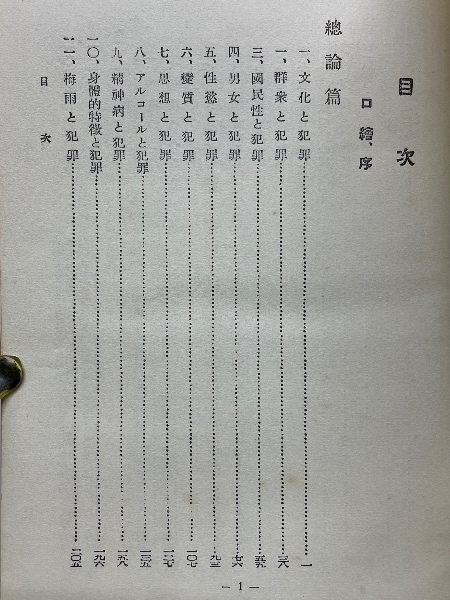 目次
口繪、序
總論篇
一、文化と犯罪……一
一、群衆と犯罪……三八
三、國民性と犯罪……
四、男女と犯罪……七六
五、性慾と犯罪……九三
六、變質と犯罪……一〇七
七、思想と犯罪……一二七
八、アルコールと犯罪……一三五
九、精神病と犯罪……一五八
一〇、身體的特徵と犯罪……一九六
一一、梅雨と犯罪……二〇五
目次
— 1 —